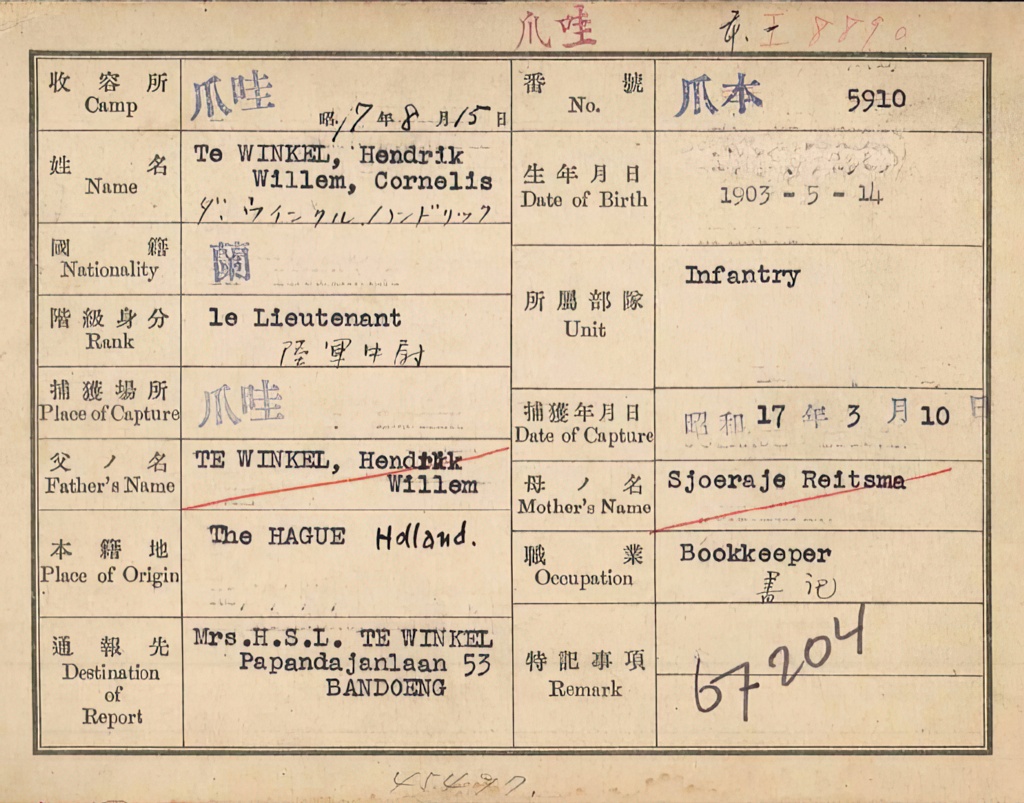 爪哇
I 8890
收容所
Camp
爪哇
昭17年8月15日
番號
No.
爪本 5910
姓名
Name
Te WINKEL, Hendrik
Willem, Cornelis
ダ.ウインクル.ハンドリック
生年月日
Date of Birth
1903 - 5 - 14
國籍
Nationality
蘭
階級身分
Rank
1e Lieutenant
陸軍中尉
所屬部隊
Unit
Infantry
捕獲場所
Place of Capture
爪哇
捕獲年月日
Date of Capture
昭和17年3月10日
父ノ名
Father's Name
TE WINKEL, Hendrik
Willem
母ノ名
Mother's Name
Sjoeraje Reitsma
本籍地
Place of Origin
The HAGUE Holland.
職業
Occupation
Bookkeeper
書記
通報先
Destination
of
Report
Mrs.H.S.L. TE WINKEL
Papandajanlaan 53
BANDOENG
特記事項
Remark
67204